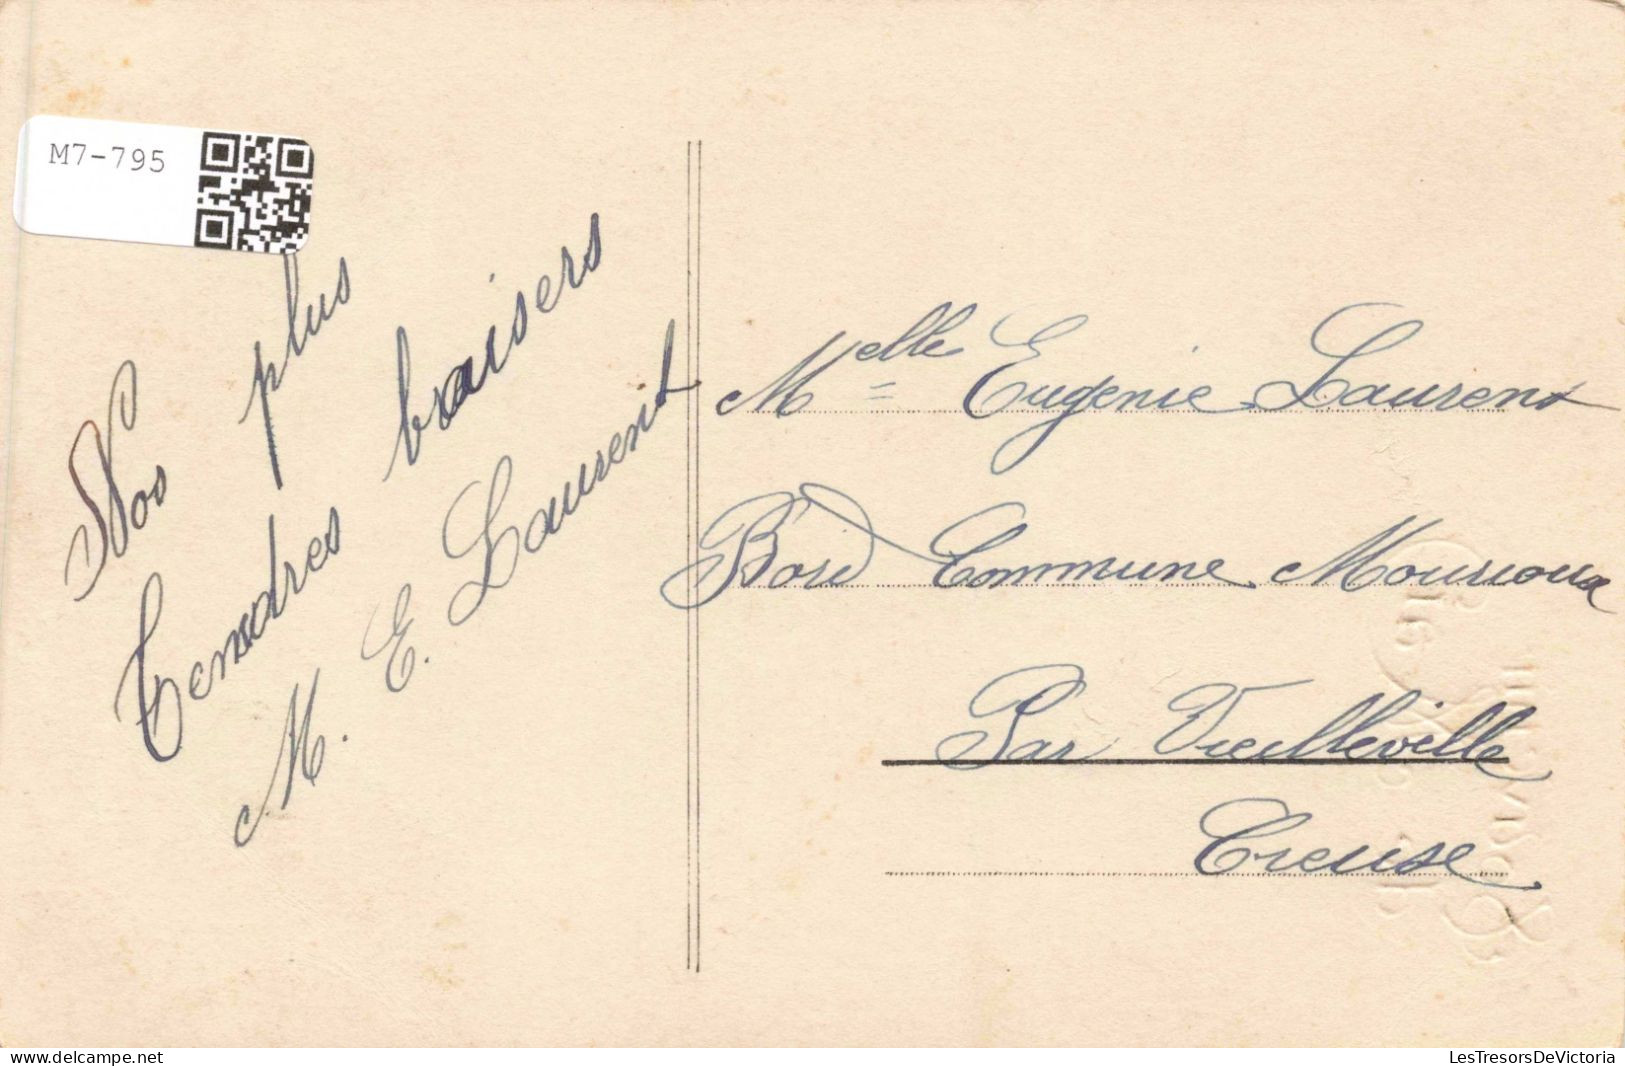 M7-795
Nos plus
Tendres baisers
M. E. Laurent
Melle Eugenie Laurent
Commune Mourioux
Par Vieilleville
Creuse
LesTresorsDeVictoria